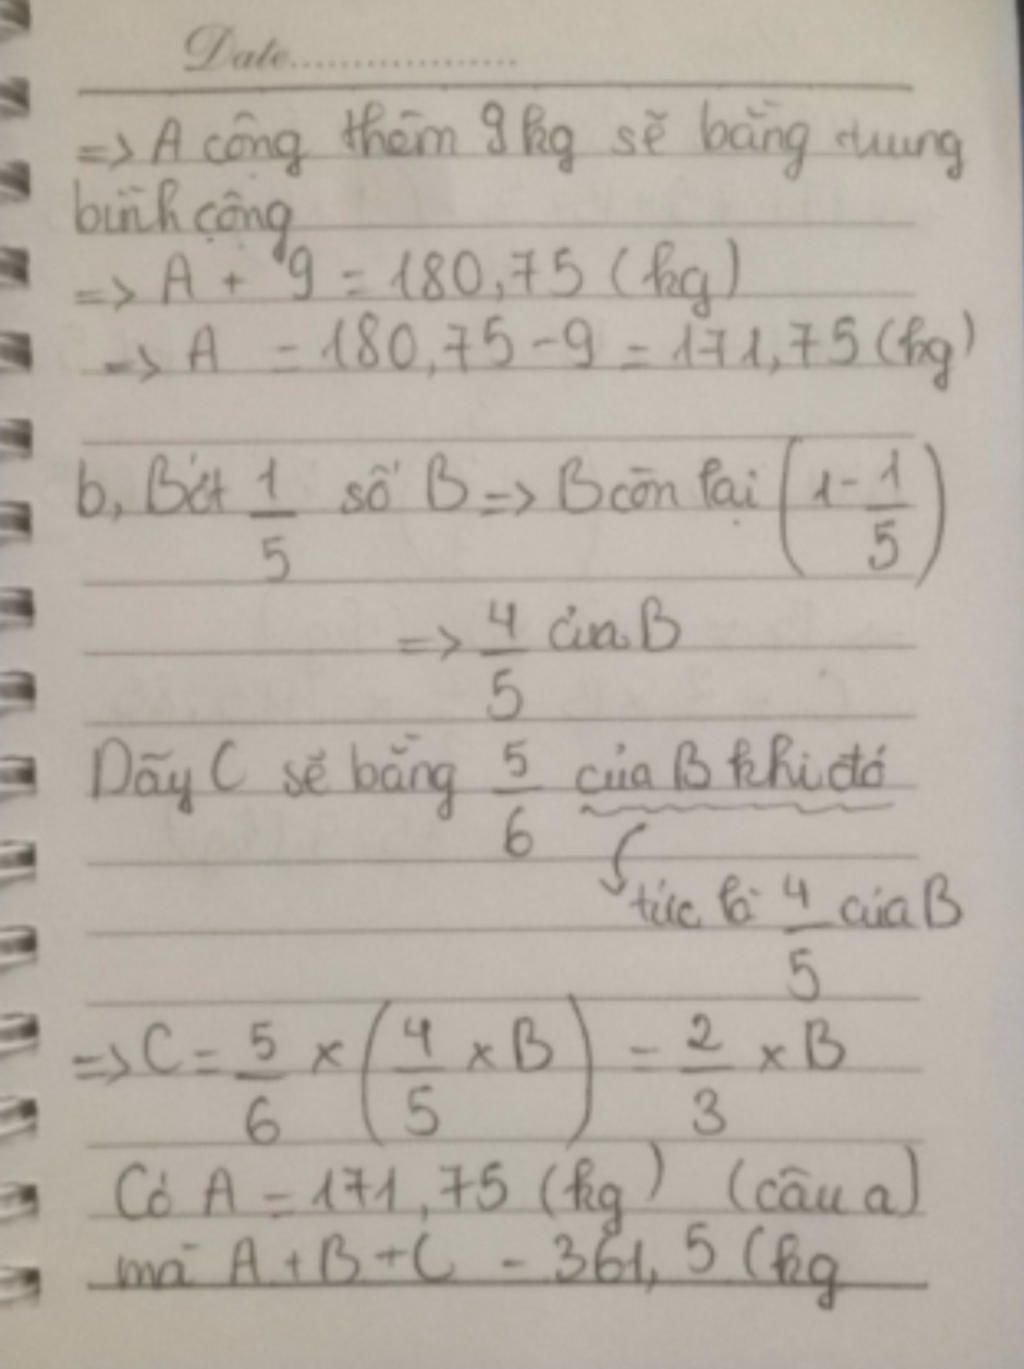 Date..................
=> A cộng thêm 9 kg sẽ bằng trung
bình cộng
=> A + 9 = 180,75 (kg)
=> A = 180,75 - 9 = 171,75 (kg)
b, Bớt 1/5 số B => B còn lại (1 - 1/5)
=> 4/5 của B
Dãy C sẽ bằng 5/6 của B khi đó
tức là 4/5 của B
=> C = 5/6 × (4/5 × B) = 2/3 × B
Có A = 171,75 (kg) (câu a)
mà A + B + C = 361,5 (kg